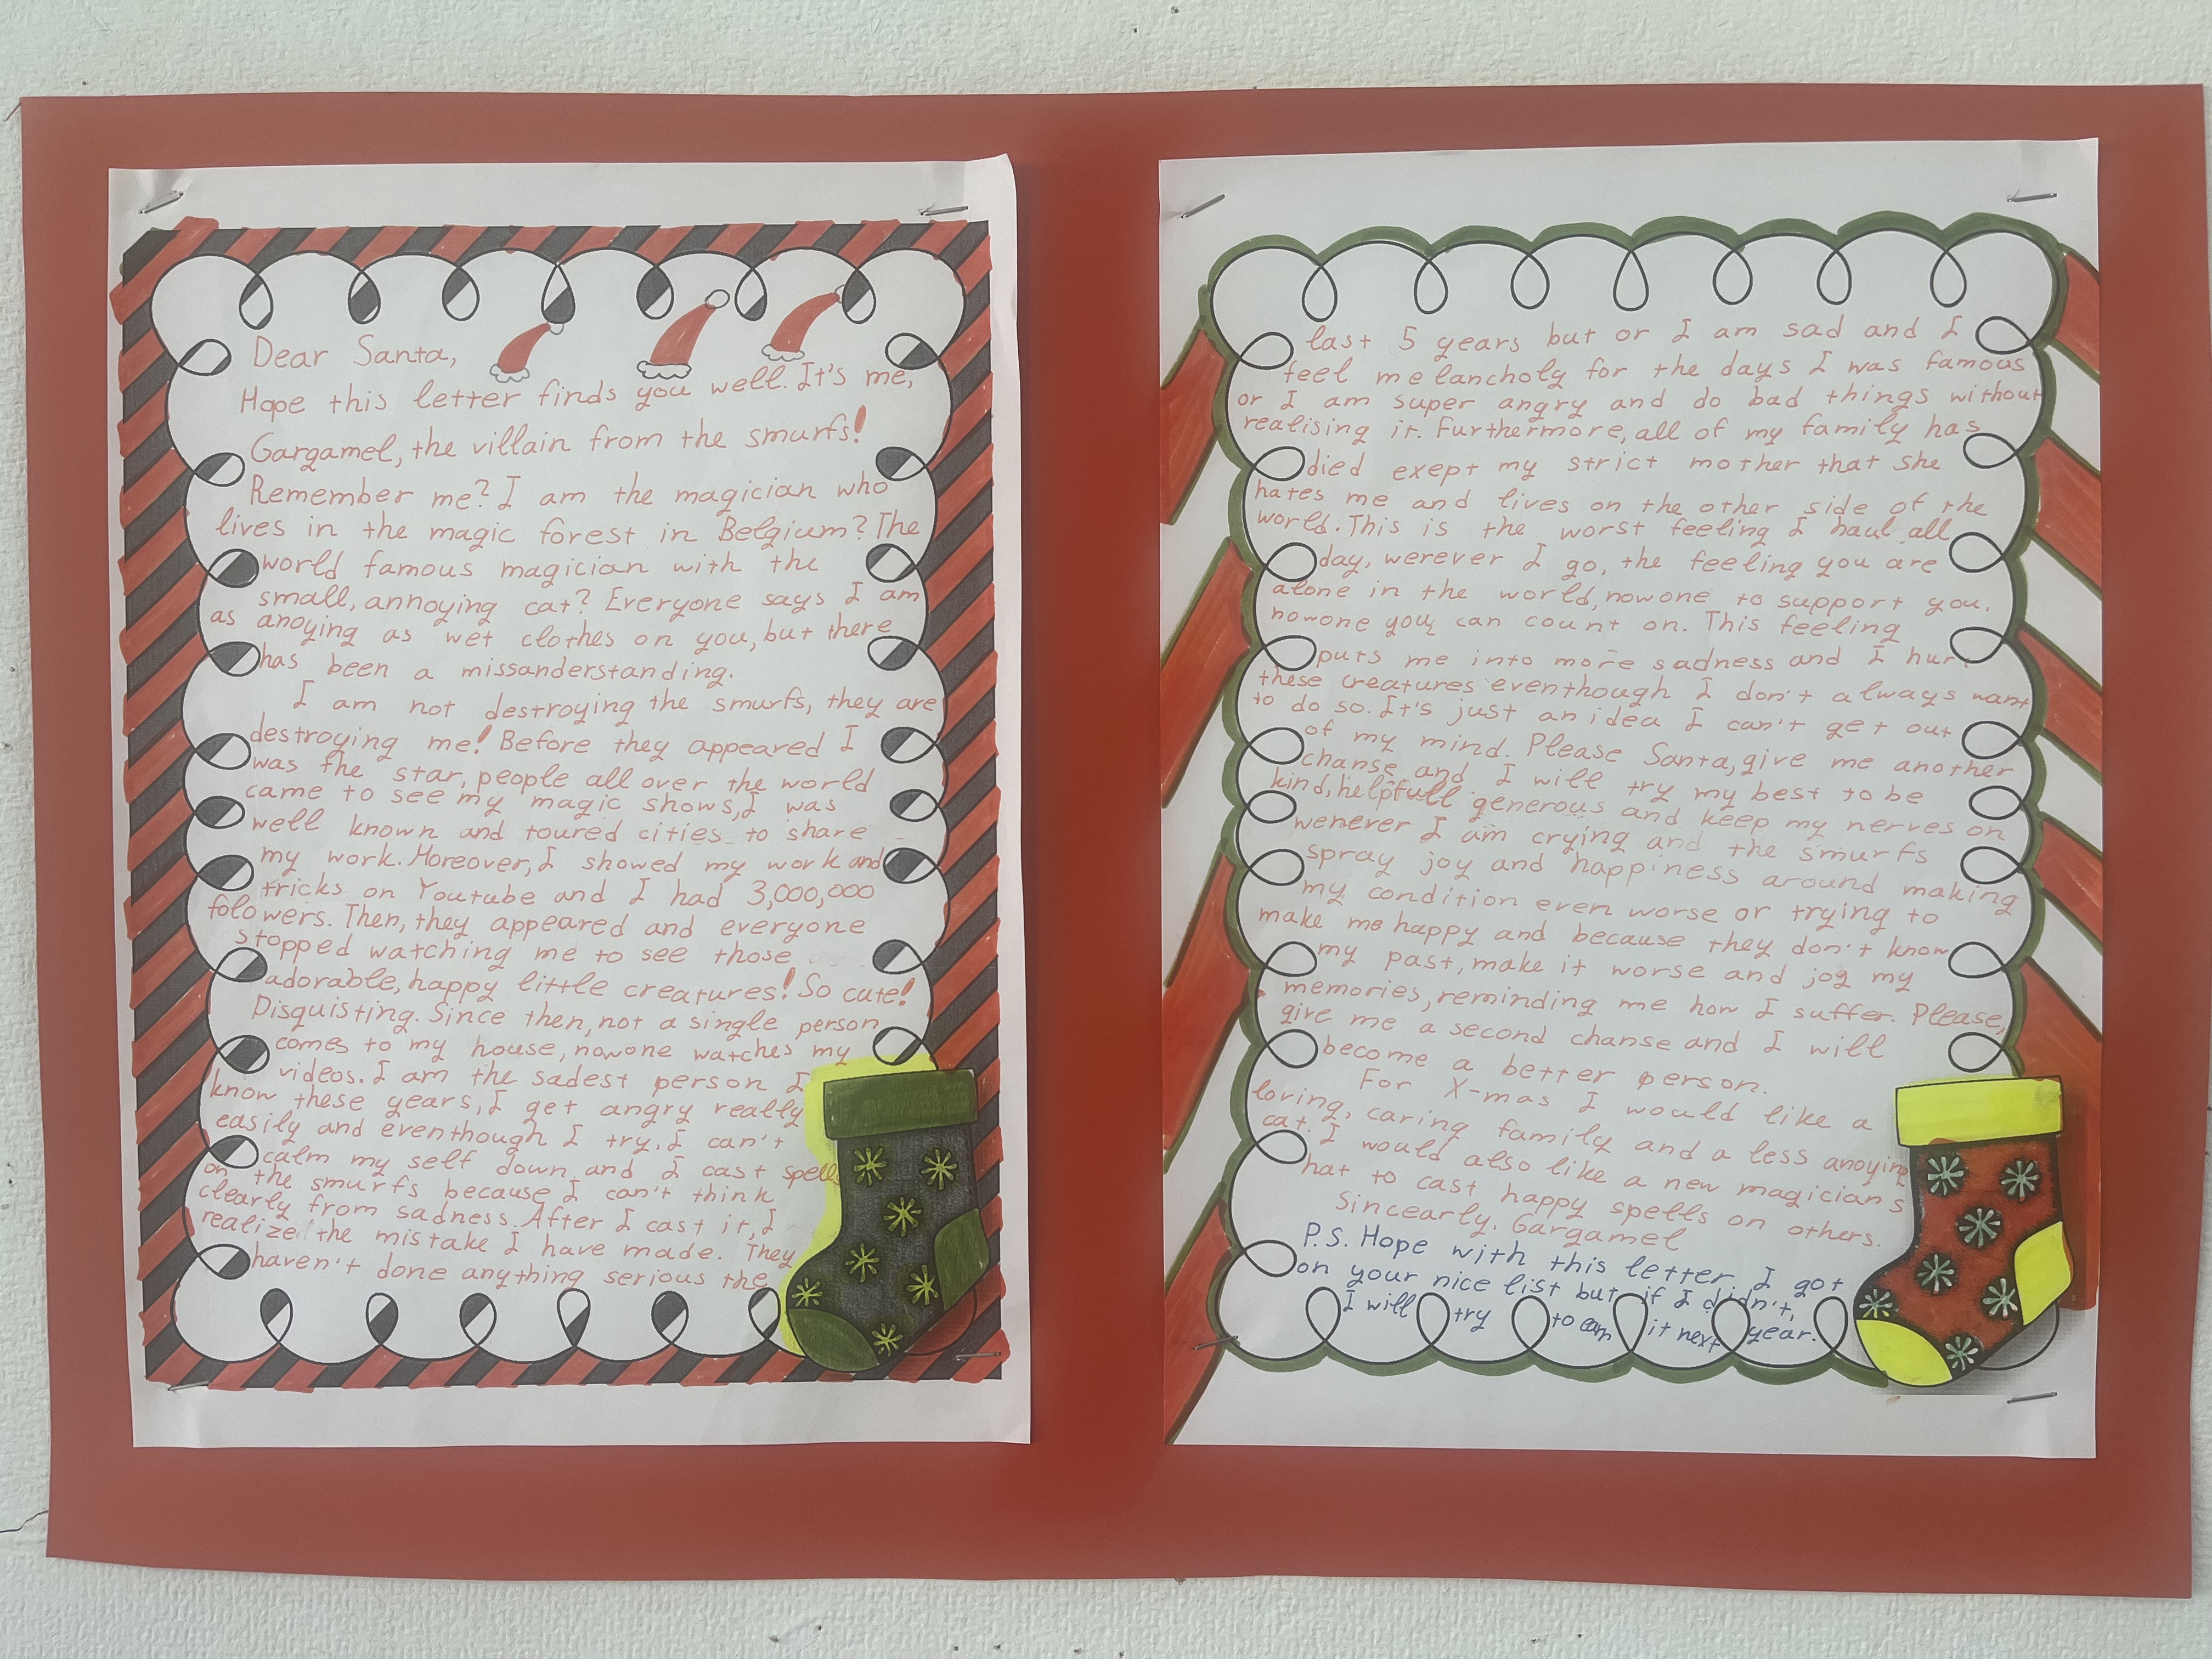 Dear Santa,
Hope this letter finds you well. It's me,
Gargamel, the villain from the smurfs!
Remember me? I am the magician who
lives in the magic forest in Belgium? The
world famous magician with the
small, annoying cat? Everyone says I am
as anoying as wet clothes on you, but there
has been a missanderstanding.
I am not destroying the smurfs, they are
destroying me! Before they appeared I
was the star, people all over the world
came to see my magic shows, I was
well known and toured cities to share
my work. Moreover, I showed my work and
tricks on Youtube and I had 3,000,000
folowers. Then, they appeared and everyone
stopped watching me to see those
adorable, happy little creatures! So cute!
Disquisting. Since then, not a single person
comes to my house, nowone watches my
videos. I am the sadest person I
know these years, I get angry really
easily and eventhough I try, I can't
calm my self down and I cast spells
on the smurfs because I can't think
clearly from sadness. After I cast it, I
realize the mistake I have made. They
haven't done anything serious the
last 5 years but or I am sad and I
feel melancholy for the days I was famous
or I am super angry and do bad things without
realising it. Furthermore, all of my family has
died exept my strict mother that she
hates me and lives on the other side of the
world. This is the worst feeling I haul all
day, werever I go, the feeling you are
alone in the world, nowone to support you,
nowone you can count on. This feeling
puts me into more sadness and I hurt
these creatures eventhough I don't always want
to do so. It's just an idea I can't get out
of my mind. Please Santa, give me another
chanse and I will try my best to be
kind, helpfull generous and keep my nerves on
wenever I am crying and the smurfs
spray joy and happiness around making
my condition even worse or trying to
make me happy and because they don't know
my past, make it worse and jog my
memories, reminding me how I suffer. Please,
give me a second chanse and I will
become a better person.
For X-mas I would like a
loving, caring family and a less anoying
cat. I would also like a new magicians
hat to cast happy spells on others.
Sincearly, Gargamel
P.S. Hope with this letter I got
on your nice list but if I didn't,
I will try to earn it next year.